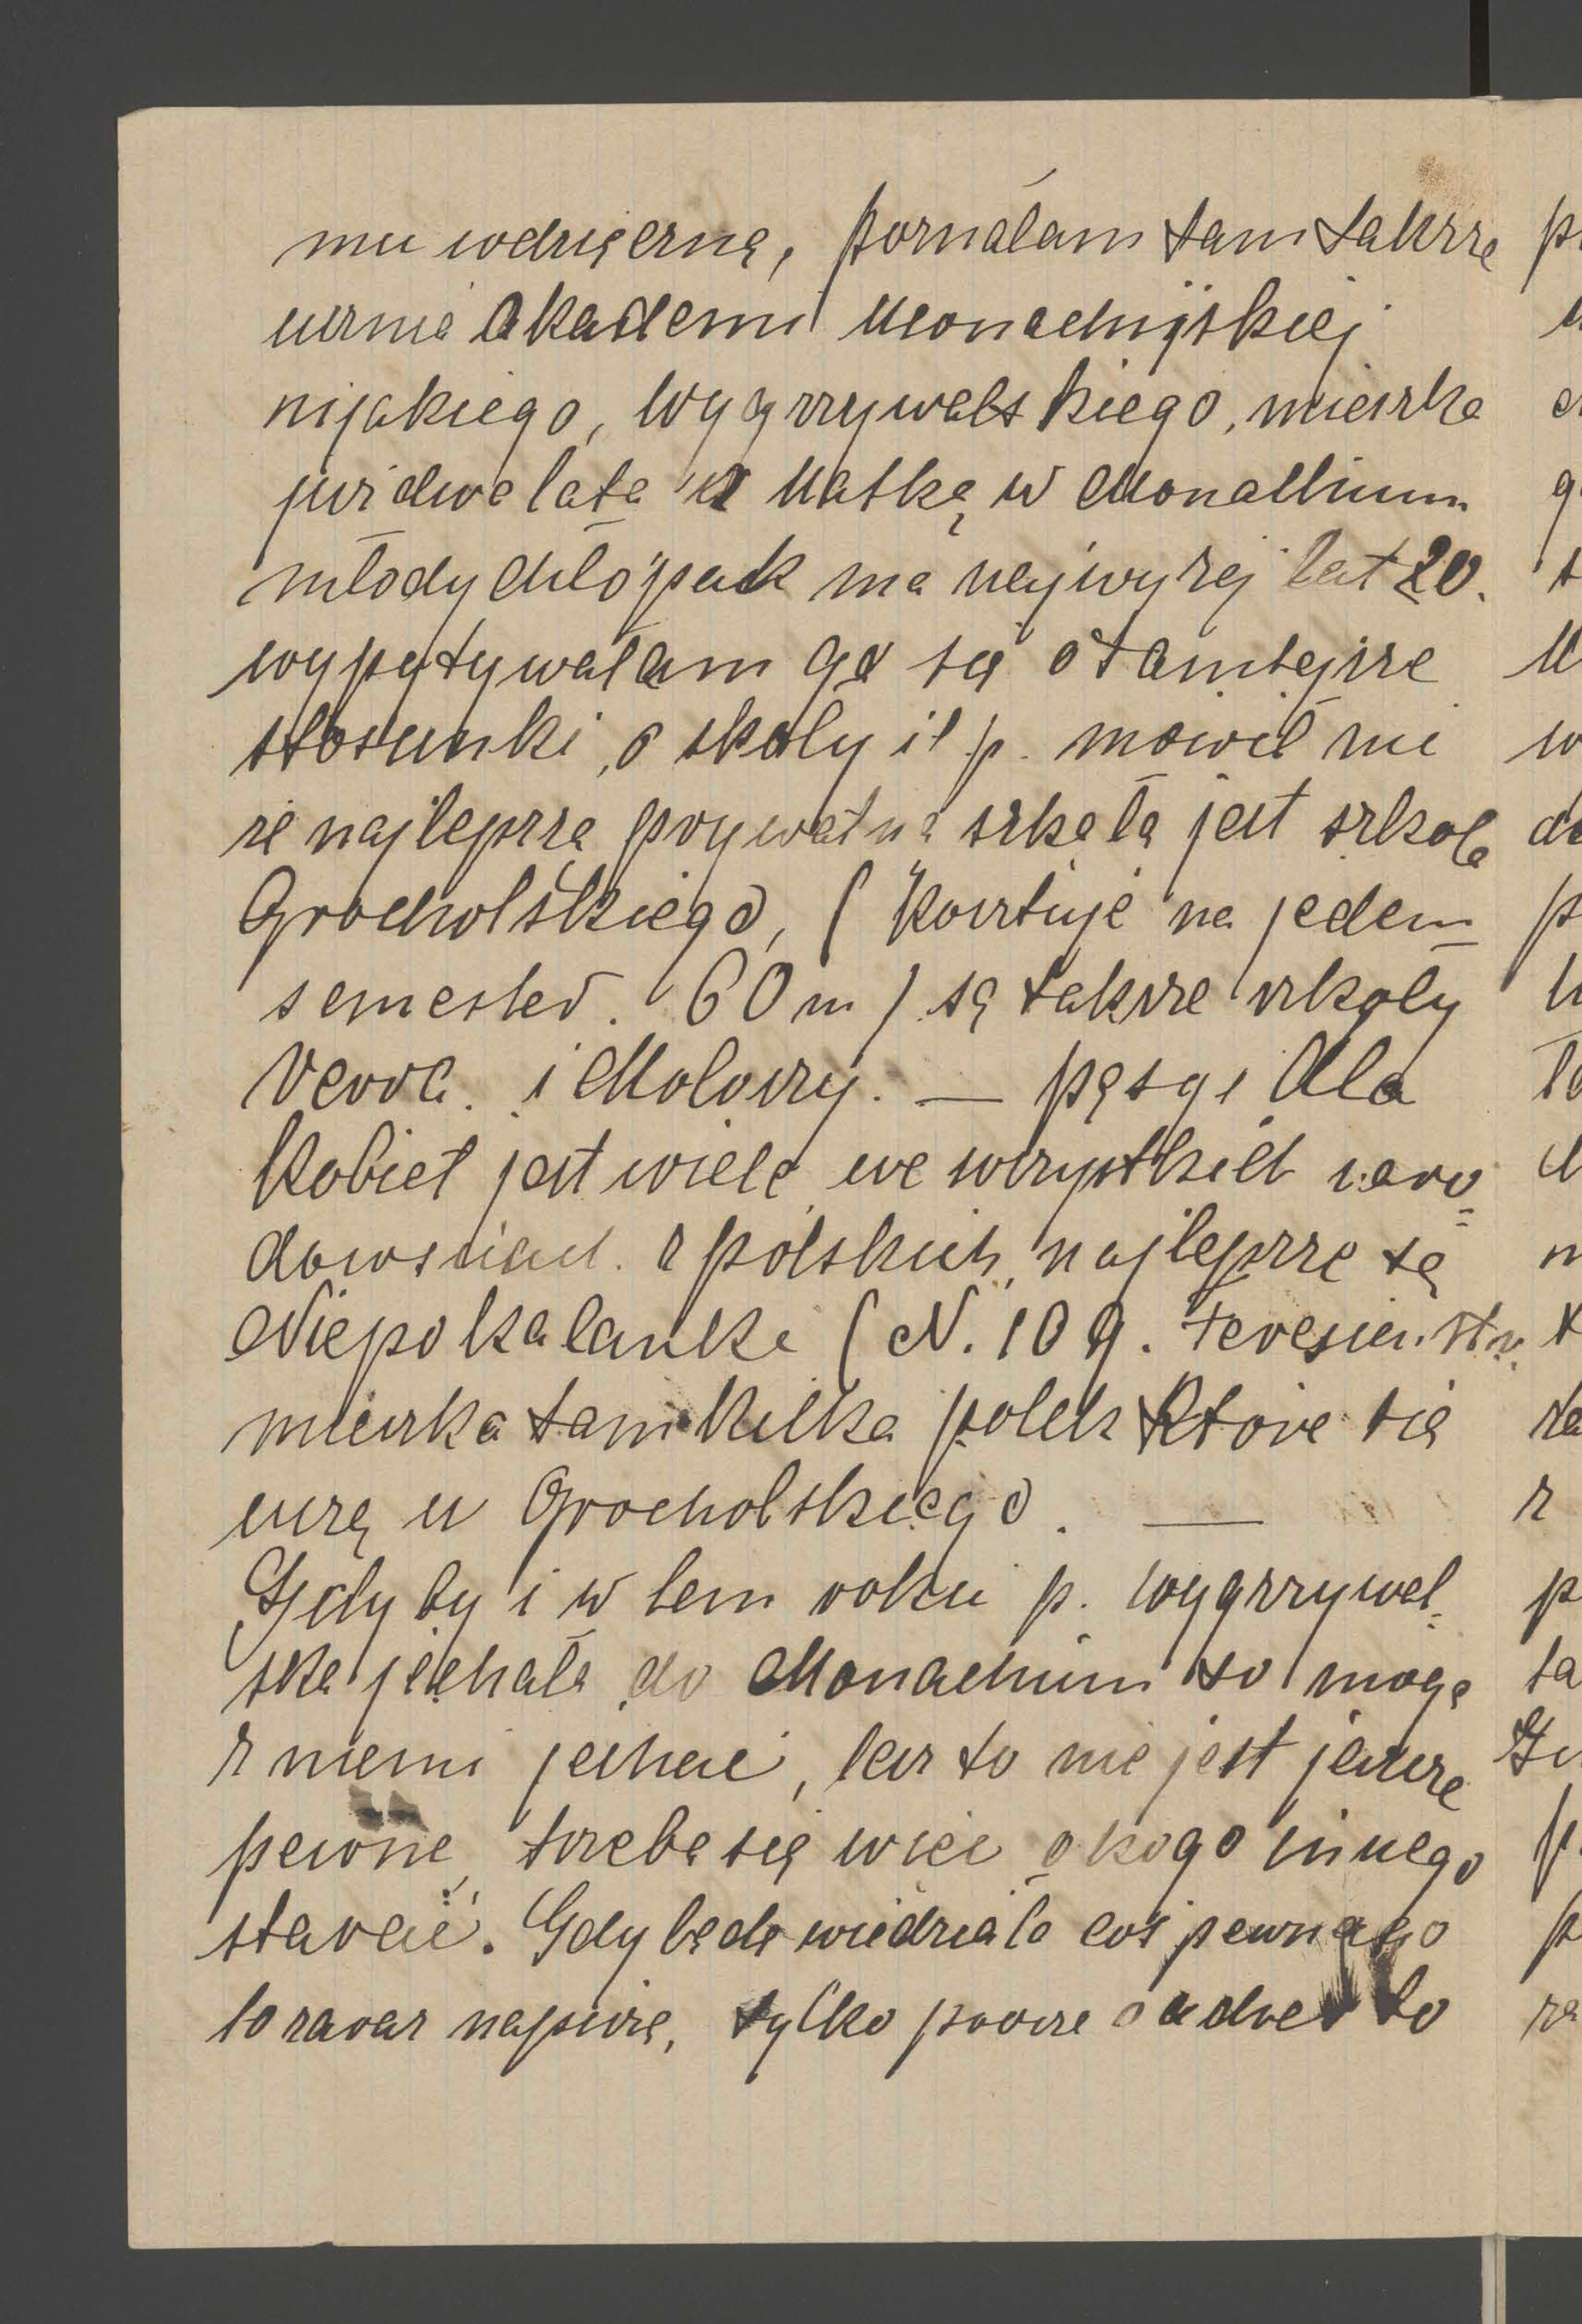 mu wdzięczną, poznałam tam także
ucznia Akademi Monachijskiej
nijakiego, Wygrzywalskiego, mieszka
już dwa lata z Matką w Monachium
młody chłopak ma najwyżej lat 20.
wypytywałam go się o tamtejsze
stosunki, o skoły i t p. mówił mi
że najlepszą prywatną szkołą jest szkoła
Grocholskiego, (kosztuje na jeden
semester. 60 m) są także szkoły
i Mołowzy. —
Kobiet jest wiele we wszystkich naro=
dowściach. z polskich, najlepsze są
Niepokalanki (N. 109. Teresien. str.
mieszka tam kilka polek które się
uczą u Grocholskiego. —
Gdyby i w tem roku p. Wygrzywal=
ska jechała do Monachium to mogę
z niemi jechać, lecz to nie jest jeszcze
pewne, trzeba się więc o kogo innego
starać. Gdy będe wiedziała coś pewnego
to zaraz napiszę, tylko prosze o adres to